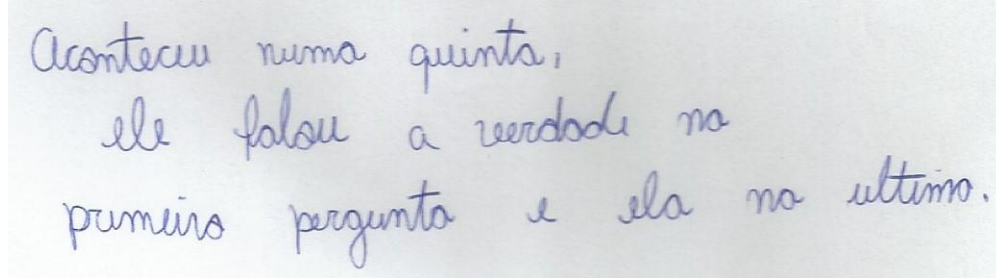 Aconteceu numa quinta,
ele falou a verdade na
primeira pergunta e ela na ultima.